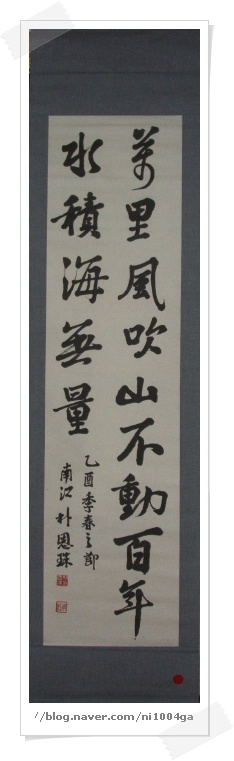 萬里風吹山不動百年
水積海無量
乙酉季春之節
南江 朴恩珠
//blog.naver.com/ni1004ga